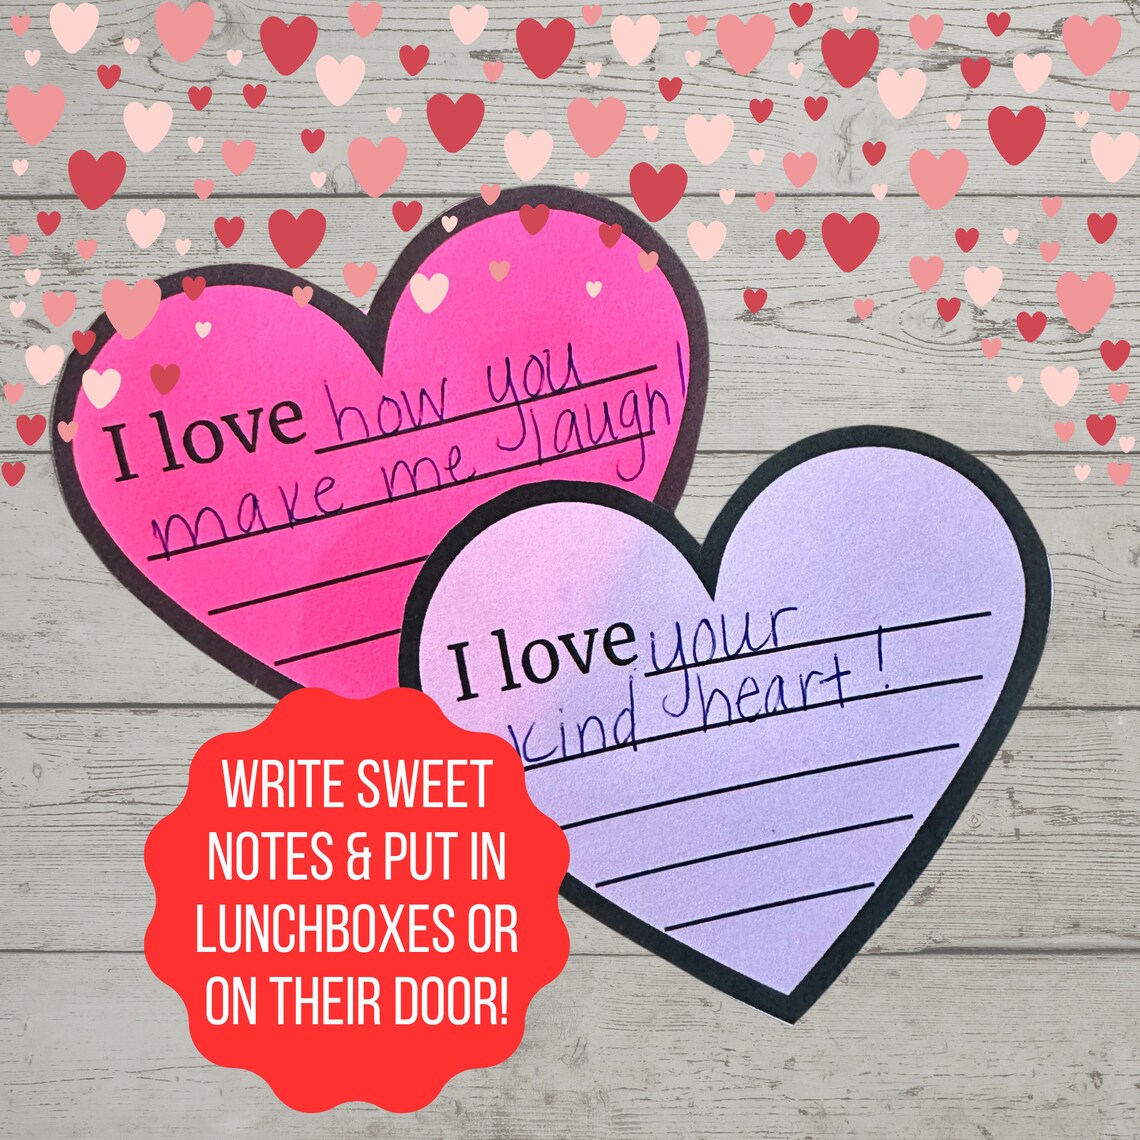 I love how you
make me laugh!
I love your
kind heart!
WRITE SWEET
NOTES & PUT IN
LUNCHBOXES OR
ON THEIR DOOR!